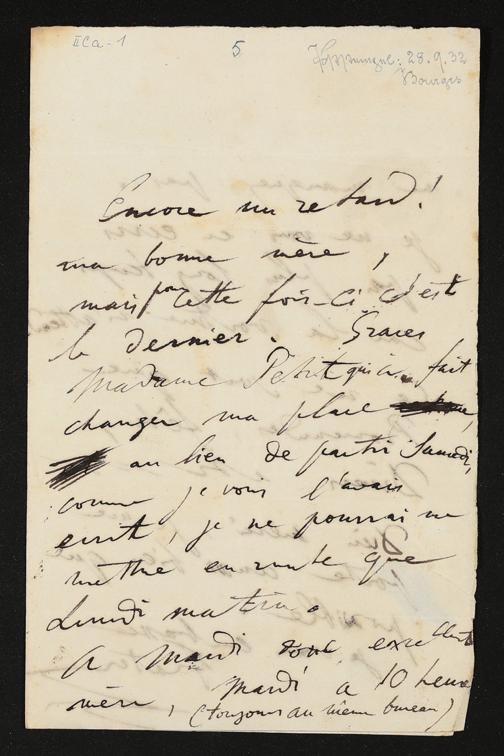 IICa-1
5
28.9.32
Bourges
Encore un retard!
ma bonne mère,
mais pour cette fois-ci c'est
le dernier. Graces
Madame Petit qui a fait
changer ma place
au lieu de partir Samedi,
comme je vous l'avais
ecrit, je ne pourrai me
mettre en route que
Lundi matin.
A mardi donc, excellente
mère, mardi a 10 heures
(toujours au même bureau)